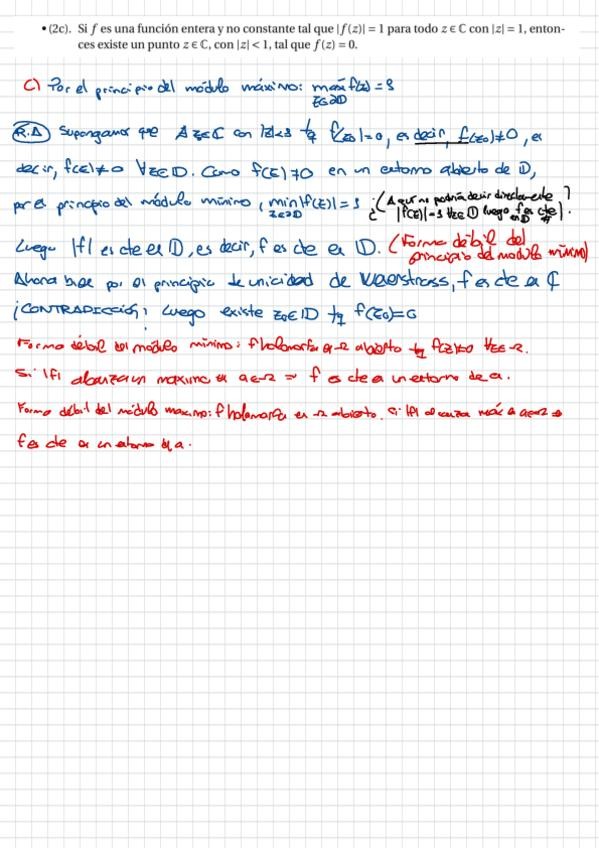 • (2c). Si f es una función entera y no constante tal que |f(z)| = 1 para todo z ∈ ℂ con |z| = 1, enton-
ces existe un punto z ∈ ℂ, con |z| < 1, tal que f(z) = 0.
C) Por el principio del módulo máximo: máx f(z) = 1
z∈∂D
R.A Supongamos que ∄ z∈ℂ con |z|<1 tq f(z0)=0, es decir, f(z0)≠0, es
decir, f(z)≠0 ∀z∈D. Como f(z)≠0 en un entorno abierto de D,
por el principio del módulo mínimo, min|f(z)| = 1 ¿(Aquí no podría decir directamente
z∈∂D |f(z)|=1 ∀z∈D luego f es cte)?
en D
Luego |f| es cte en D, es decir, f es cte en D. (Forma débil del
principio del modulo mínimo)
Ahora bien por el principio de unicidad de Weierstrass, f es cte en ℂ
¡CONTRADICCIÓN! Luego existe z0∈D tq f(z0)=0
Forma débil del módulo mínimo: f holomorfa en Ω abierto tq f(z)≠0 ∀z∈Ω.
Si |f| alcanza un maximo en a∈Ω ⇒ f es cte en un entorno de a.
Forma débil del módulo maximo: f holomorfa en Ω abierto. Si |f| alcanza máx en a∈Ω ⇒
f es cte en un entorno de a.